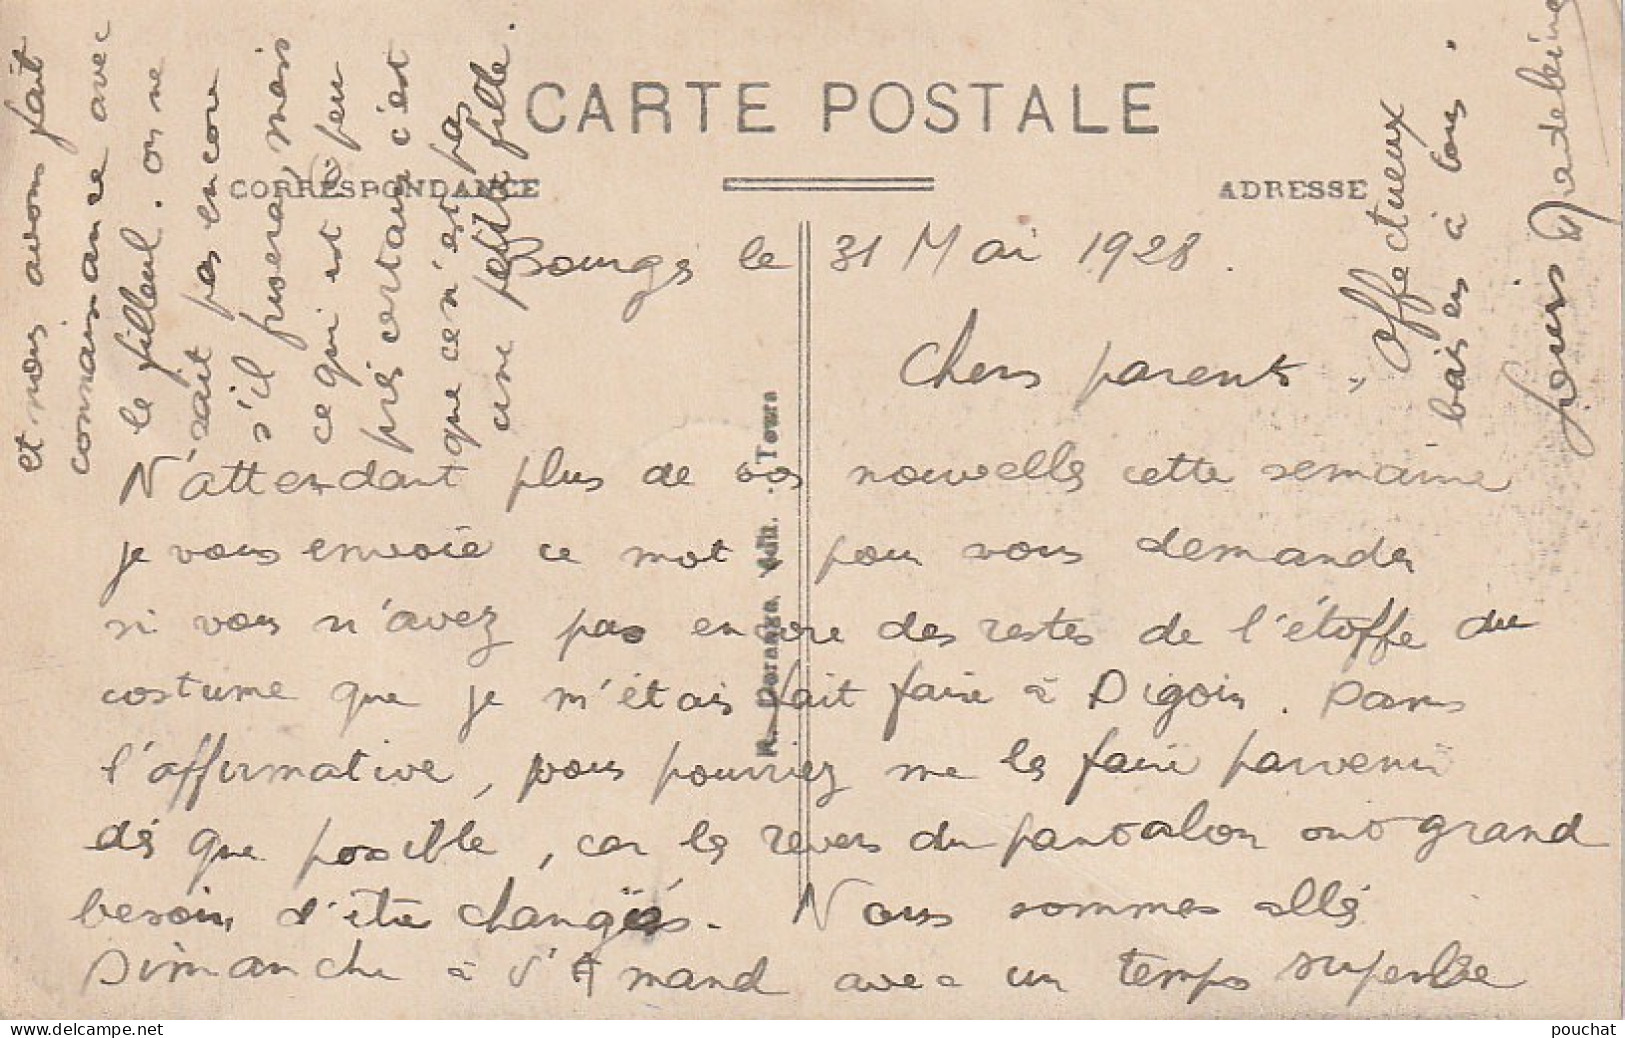 CARTE POSTALE
CORRESPONDANCE
ADRESSE
R. Dorange, édit. Tours
Bourges le 31 Mai 1928.
Chers parents,
N'attendant plus de vos nouvelles cette semaine
je vous envoie ce mot pour vous demander
si vous n'avez pas encore des restes de l'étoffe du
costume que je m'étais fait faire à Digoin. Dans
l'affirmative, vous pourriez me les faire parvenir
dès que possible, car les revers du pantalon ont grand
besoin d'être changés. Nous sommes allés
Dimanche à St Amand avec un temps superbe
et nous avons fait
connaissance avec
le filleul. on ne
sait pas encore
s'il frisera, mais
ce qui est à peu
près certain c'est
que ce n'est pas
une petite fille.
Affectueux
baisers à tous.
Louis Madeleine
pouchat